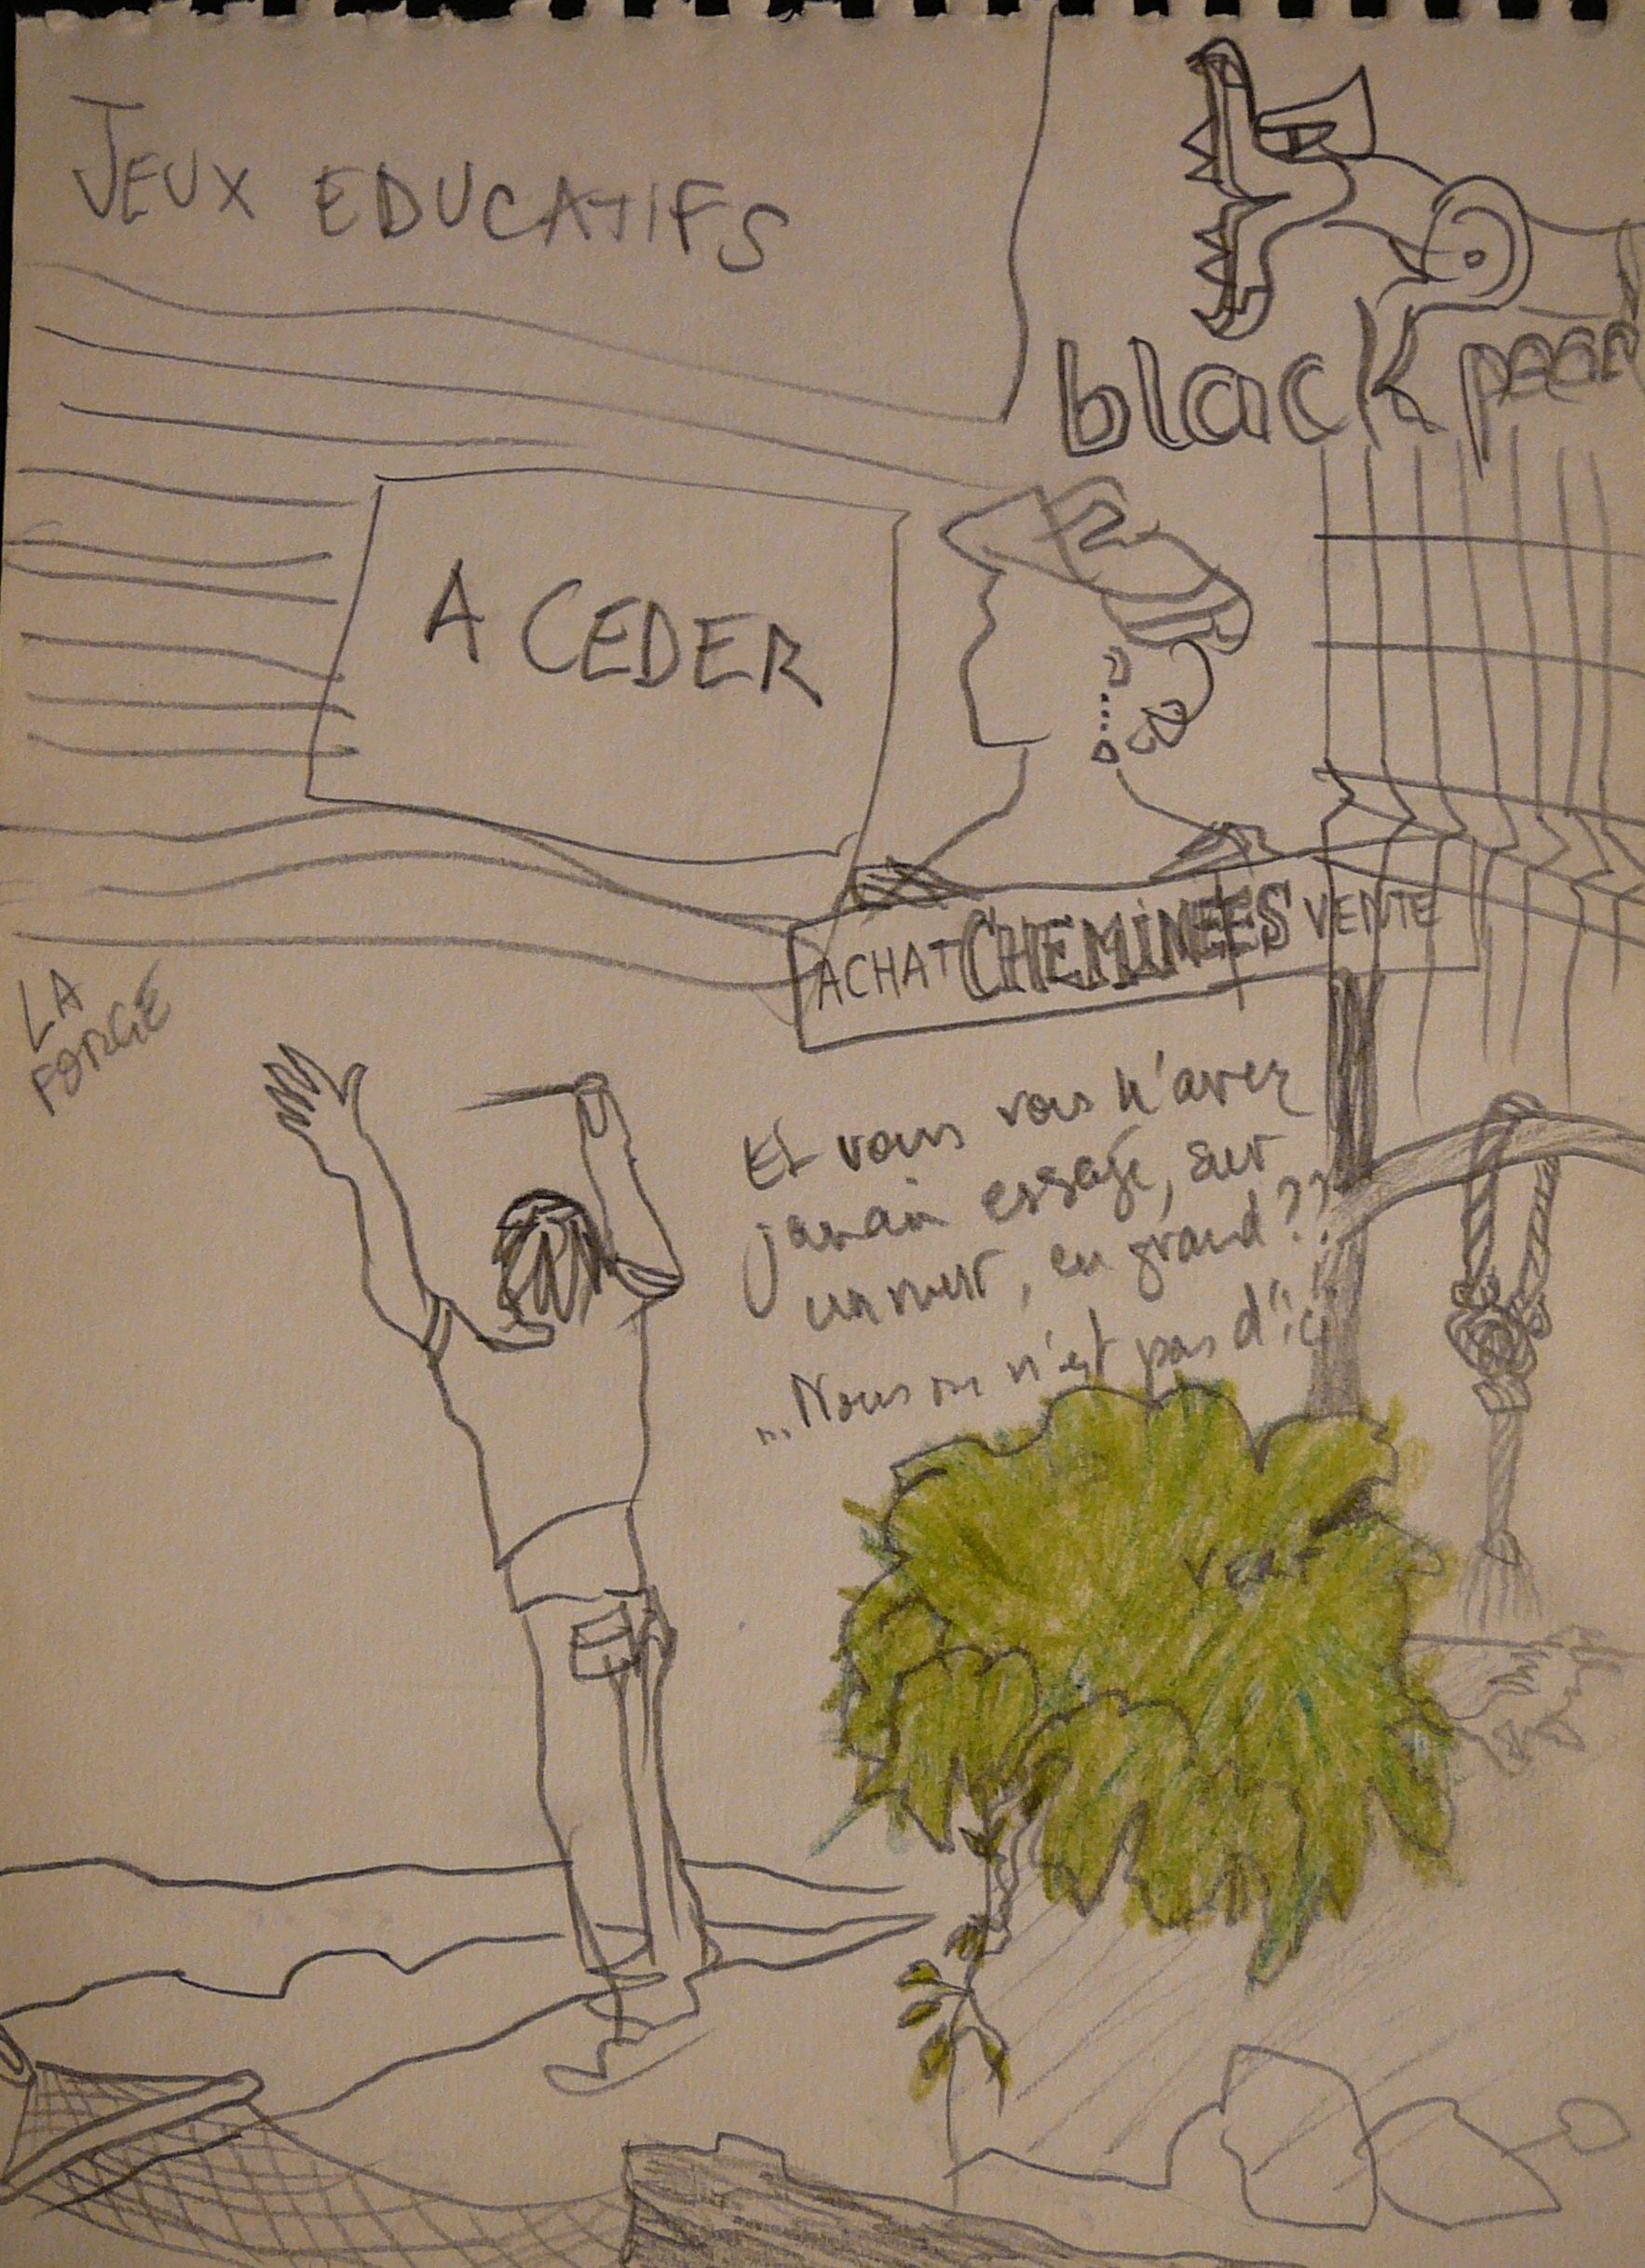 JEUX EDUCATIFS
black pear
A CEDER
ACHAT CHEMINEES VENTE
LA
FORGE
Et vous vous n'avez
jamais essayé, sur
un mur, en grand??
... Nous on n'est pas d'ici
VERT